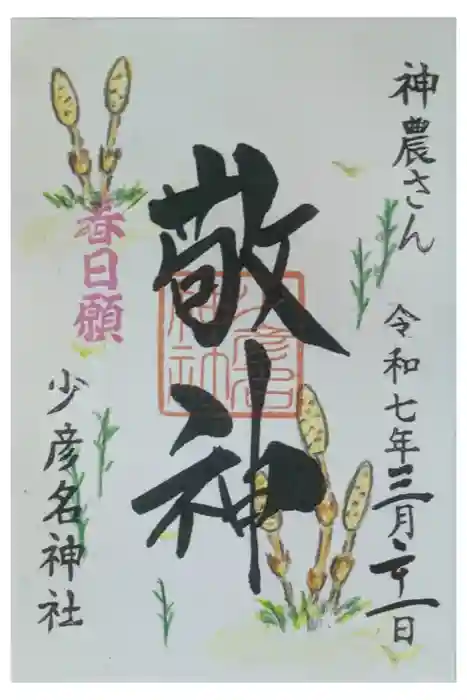 神農さん
令和七年三月二十一日
敬神
少彦名
神社
春日願
少彦名神社